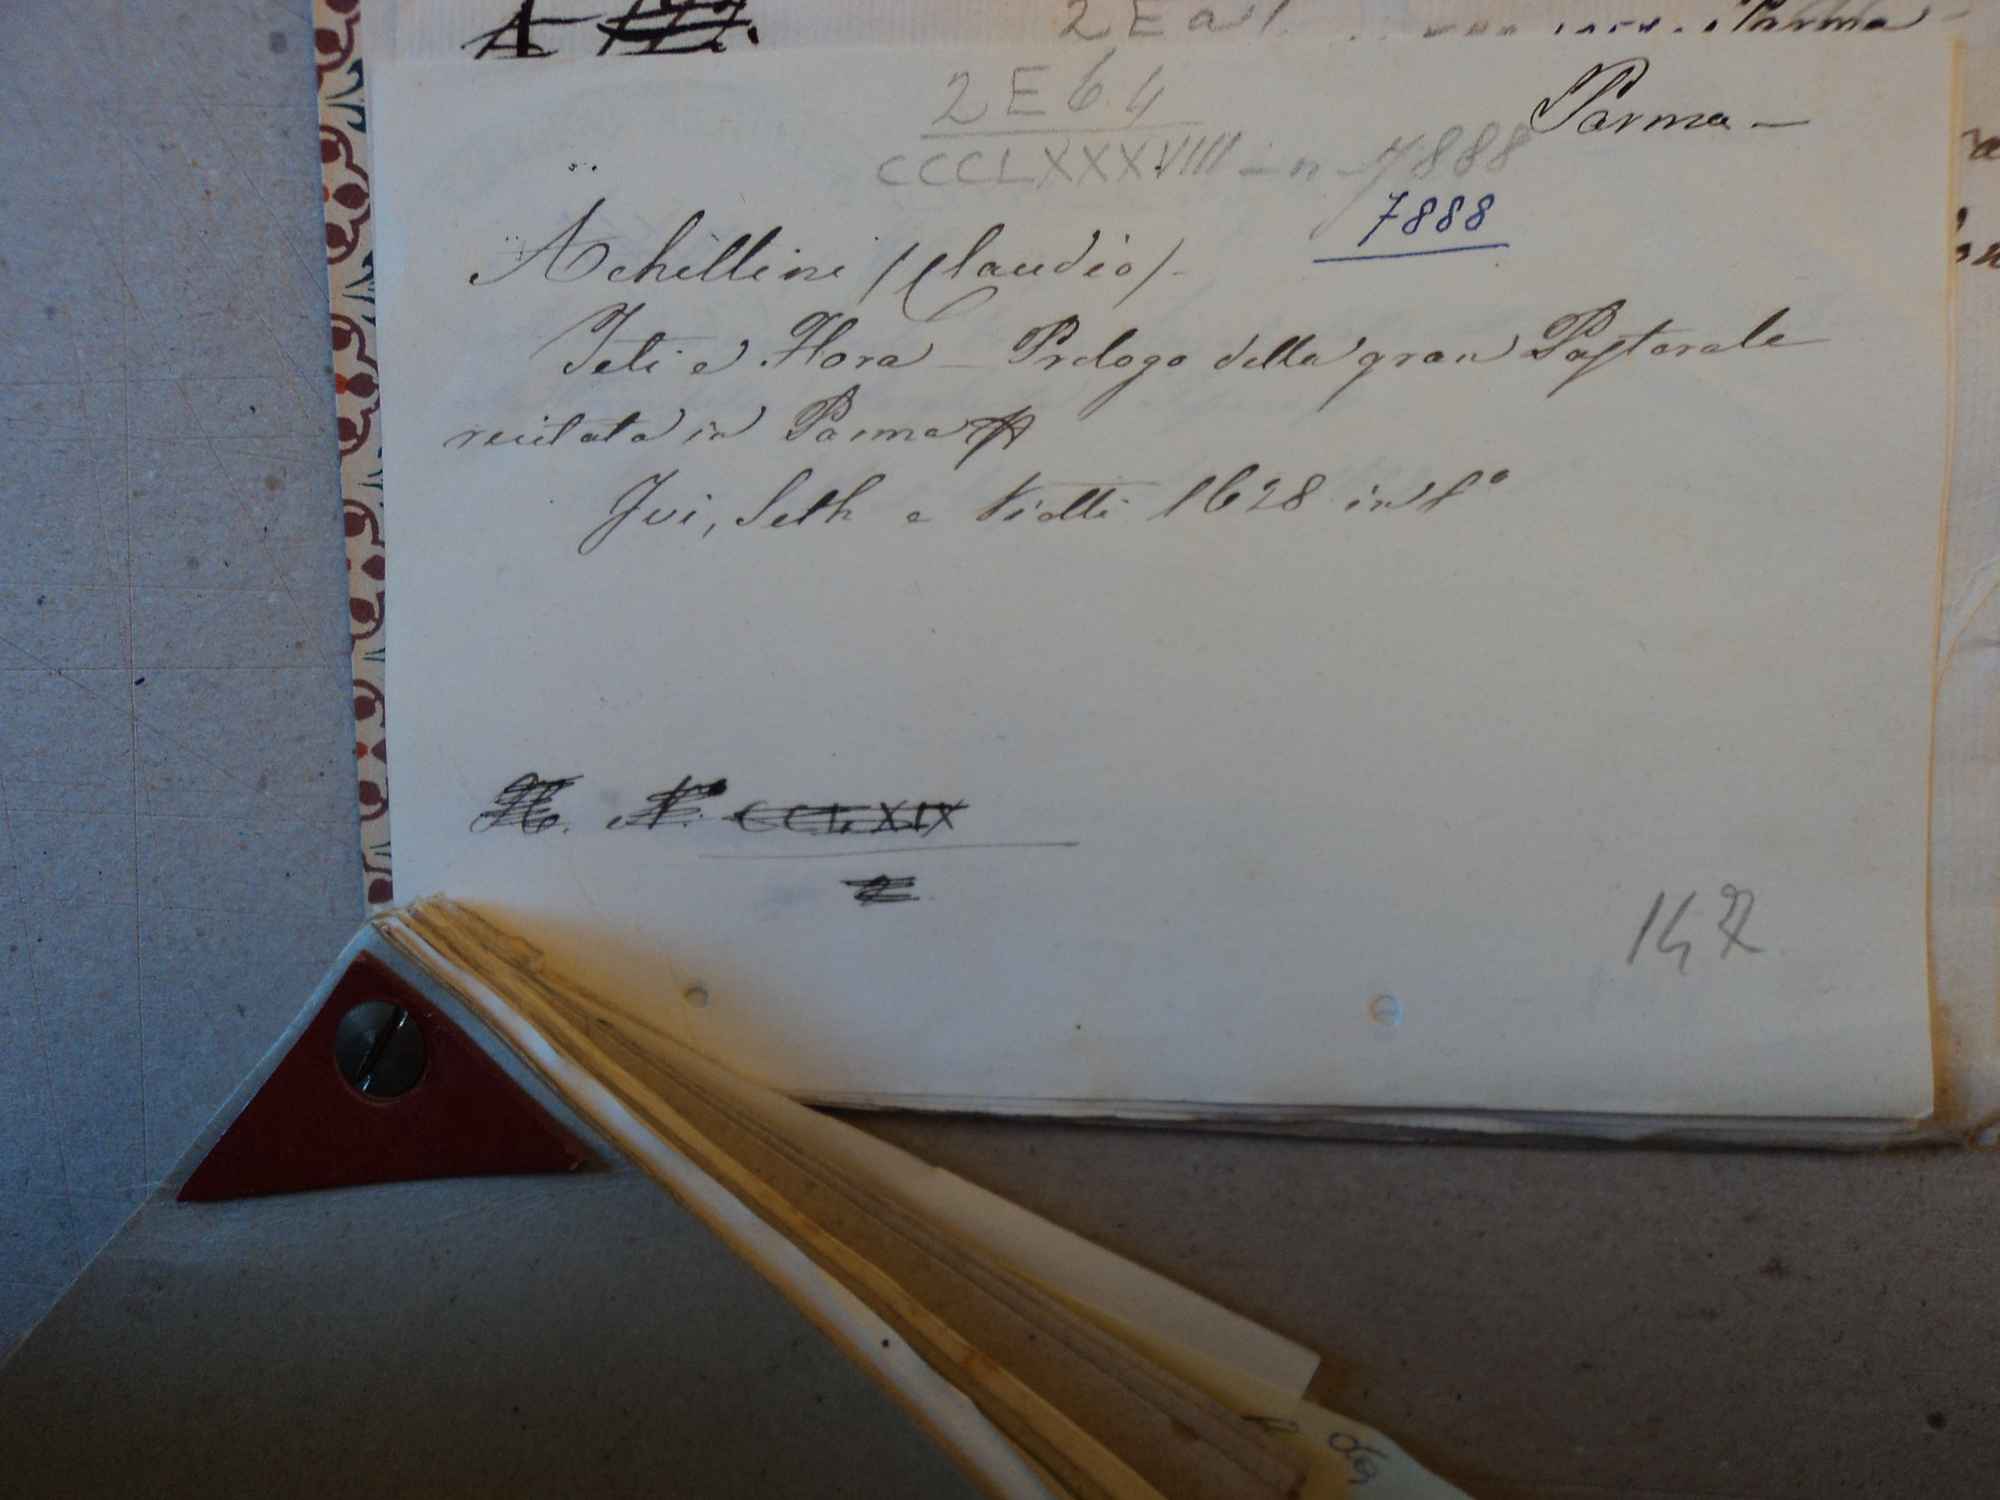 Parma
2 E 64
Parma —
CCCLXXXVIII - n 7888
7888
Achillini (Claudio).
Teti e Flora — Prologo della gran Pastorale
recitata in Parma
Ivi, Seth e Viotti 1628 in f°
N.° CCLXIX
2
147